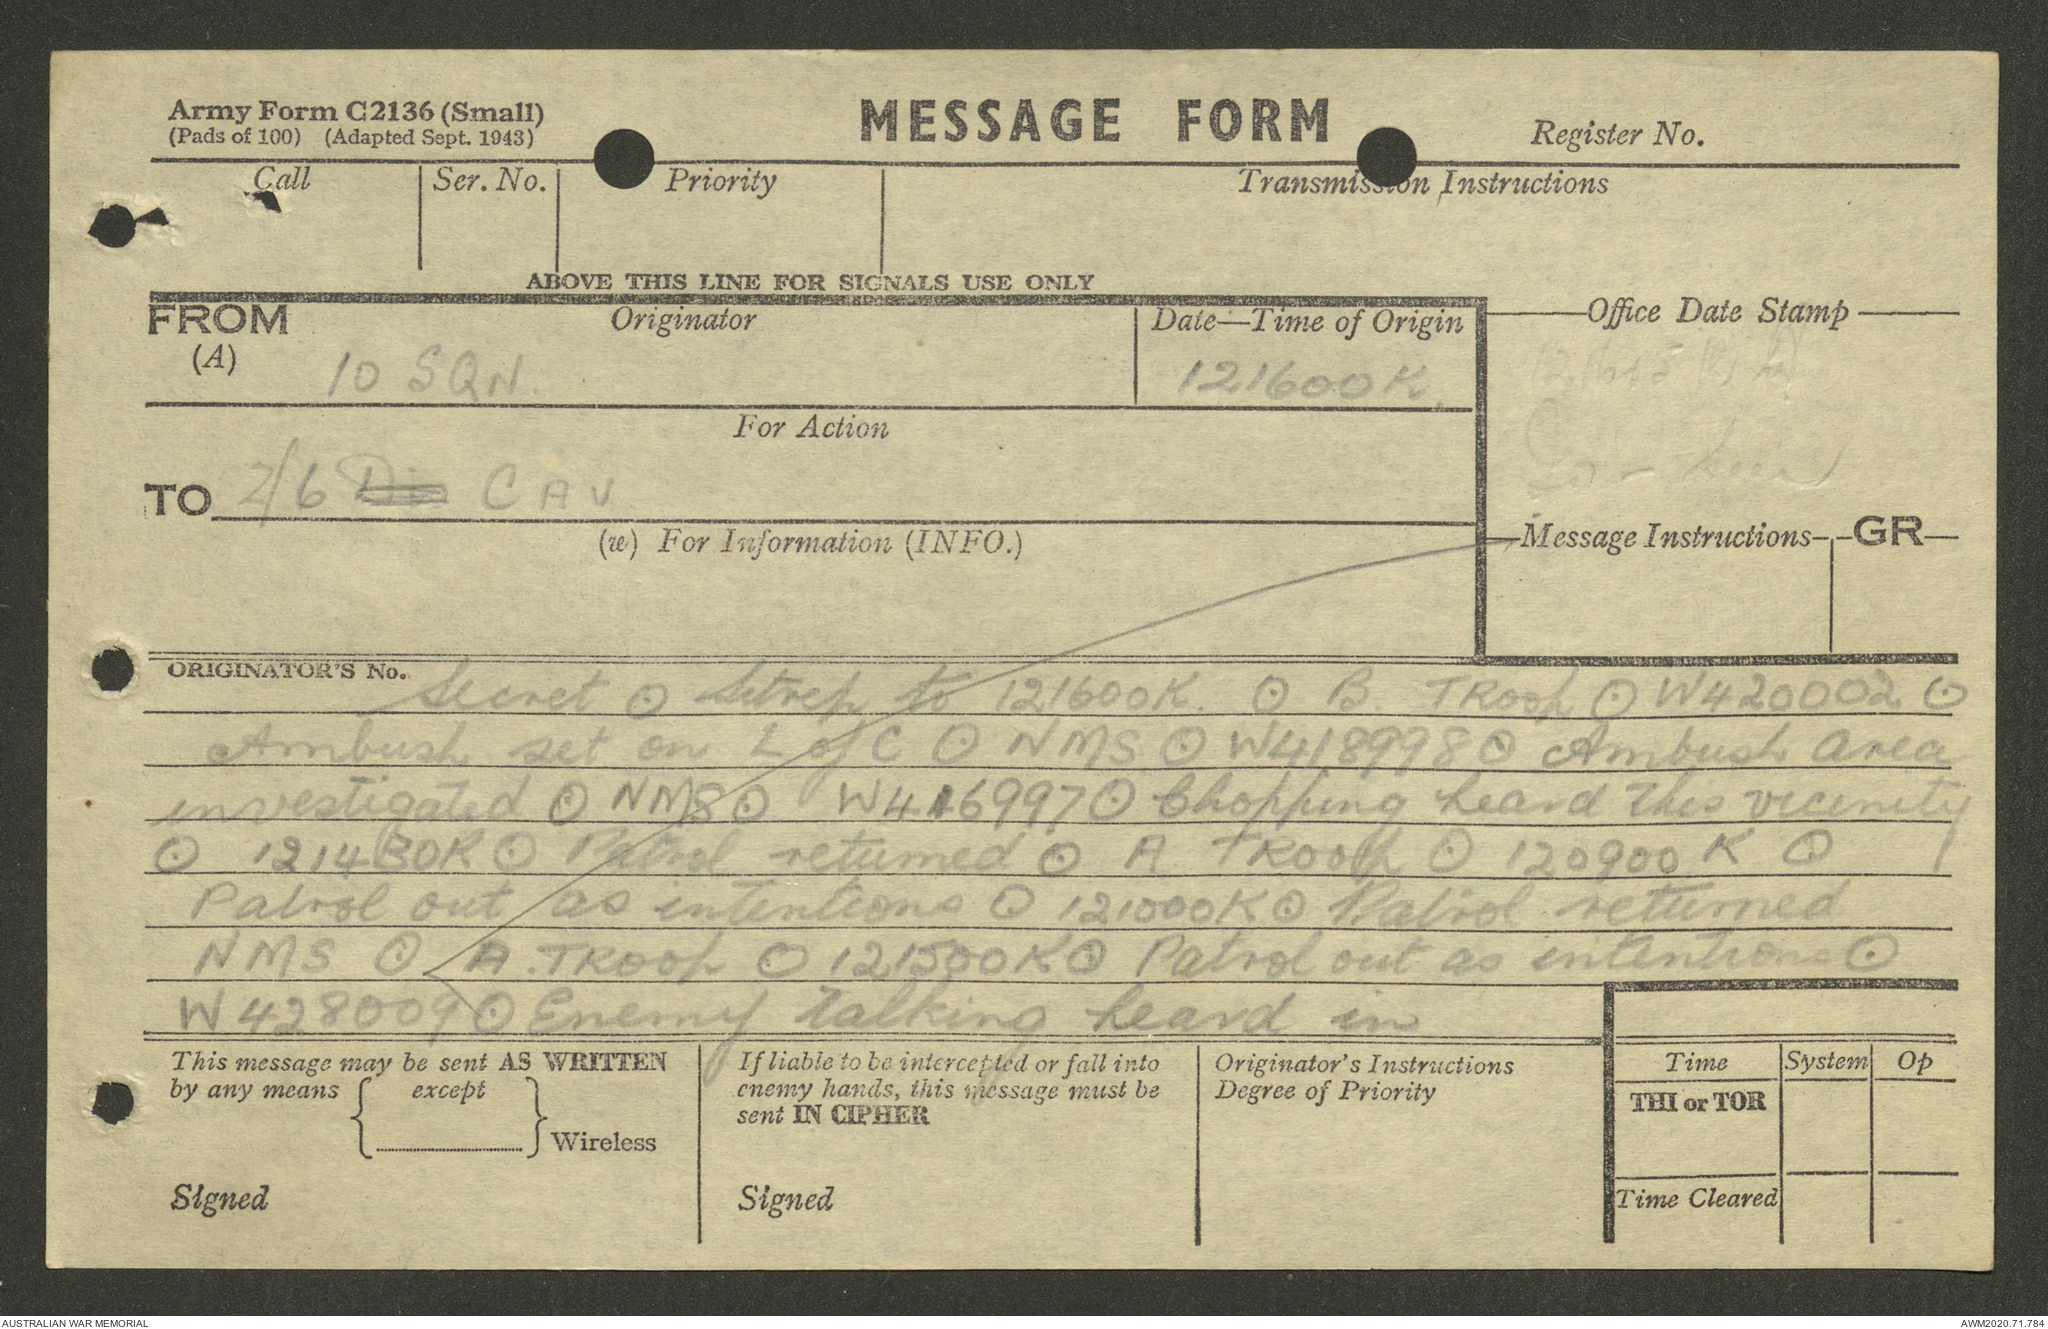 Army Form C2136 (Small)
(Pads of 100) (Adapted Sept. 1943)
MESSAGE FORM
Register No.
Call
Ser. No.
Priority
Transmission Instructions
ABOVE THIS LINE FOR SIGNALS USE ONLY
FROM
(A)
Originator
10 SQN.
Date—Time of Origin
121600K.
Office Date Stamp
For Action
TO
2/6 Div CAV
(w) For Information (INFO.)
Message Instructions
GR
ORIGINATOR'S No.
Secret ⊙ Sitrep to 121600K. ⊙ B. TRoop ⊙ W420002 ⊙
Ambush set on L of C ⊙ NMS ⊙ W418998 ⊙ Ambush area
investigated ⊙ NMS ⊙ W416997 ⊙ Chopping heard this vicinity
⊙ 121430K ⊙ Patrol returned ⊙ A TRoop ⊙ 120900 K ⊙
Patrol out as intentions ⊙ 121000K ⊙ Patrol returned
NMS ⊙ A. TRoop ⊙ 121500K ⊙ Patrol out as intentions ⊙
W428009 ⊙ Enemy talking heard in
This message may be sent AS WRITTEN
by any means
except
Wireless
Signed
If liable to be intercepted or fall into
enemy hands, this message must be
sent IN CIPHER
Signed
Originator's Instructions
Degree of Priority
Time
System
Op
THI or TOR
Time Cleared
AUSTRALIAN WAR MEMORIAL
AWM2020.71.784